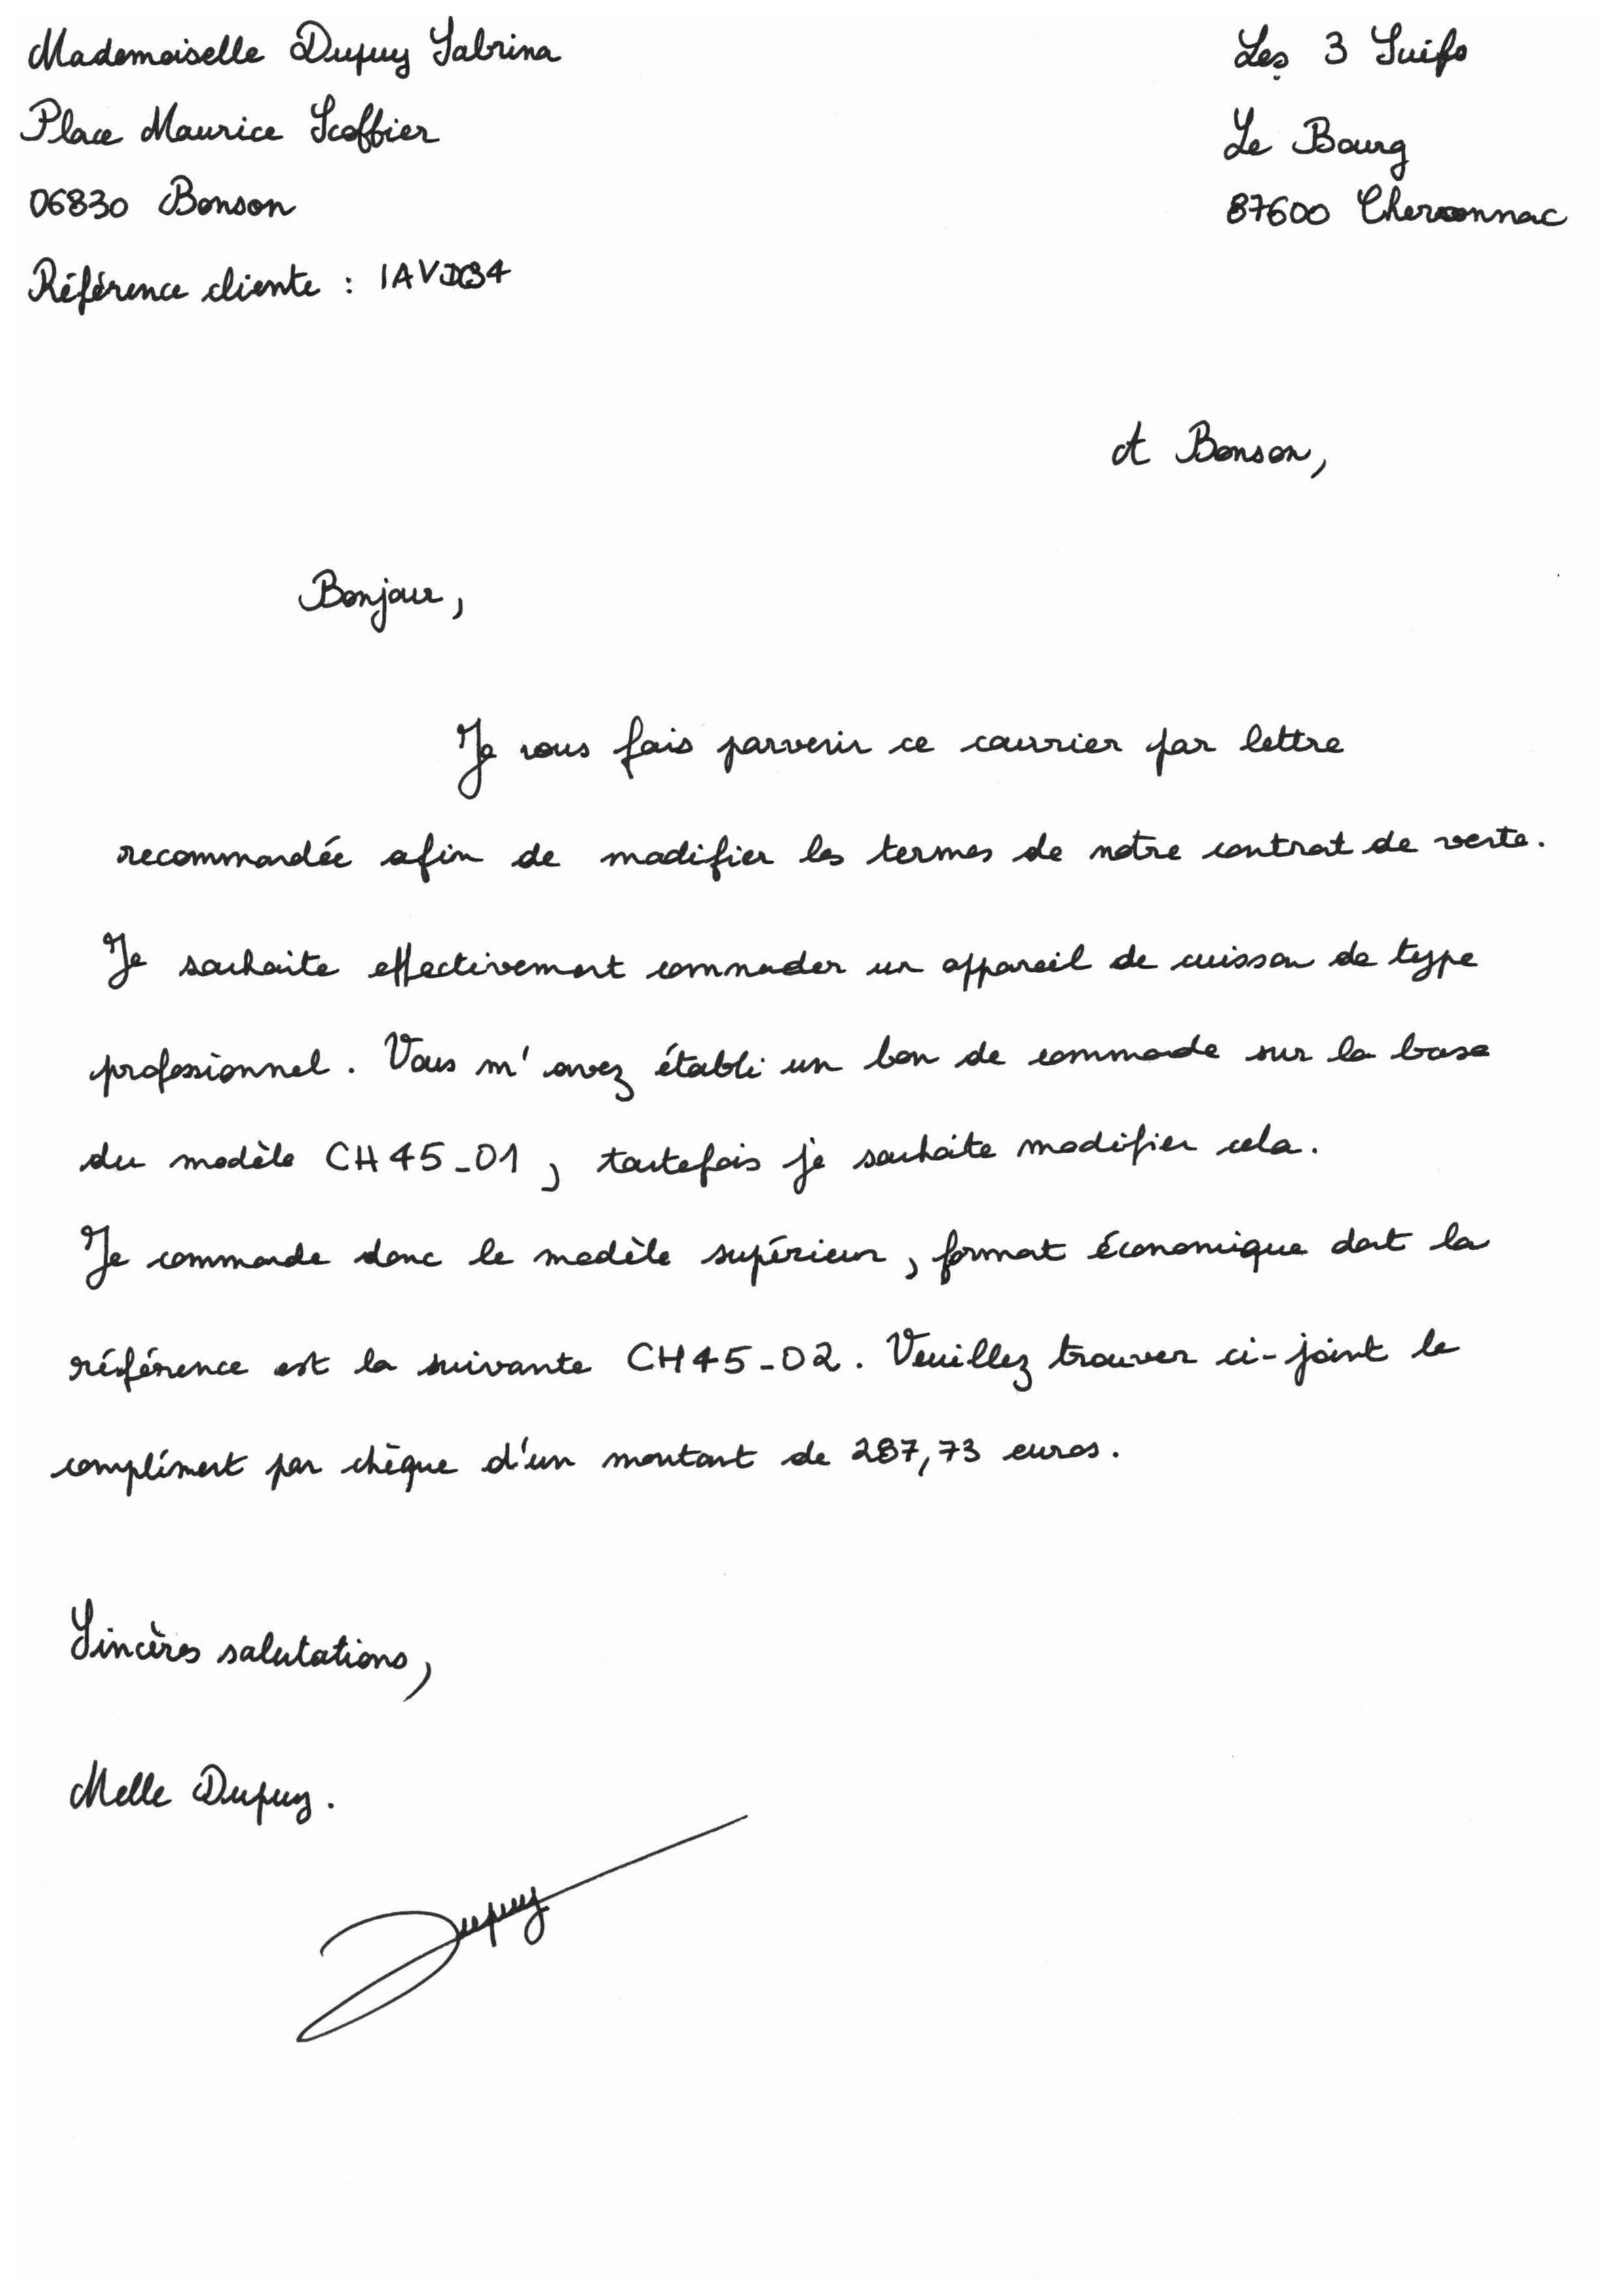 Mademoiselle Dupuy Sabrina
Place Maurice Scoffier
06830 Bonson
Référence cliente :
Les 3 Suifs
Le Bourg
87600 Cheronnac
A Bonson,
Bonjour,
Je vous fais parvenir ce courrier par lettre
recommandée afin de modifier les termes de notre contrat de vente.
Je souhaite effectivement commnader un appareil de cuisson de type
professionnel. Vous m'avez établi un bon de commande sur la base
du modèle CH45-01, toutefois je souhaite modifier cela.
Je commande donc le modèle supérieur, format économique dont la
référence est la suivante CH45-02. Veuillez trouver ci-joint le
complément par chèque d'un montant de 287,73 euros.
Sincères salutations,
Melle Dupuy.
Dupuy